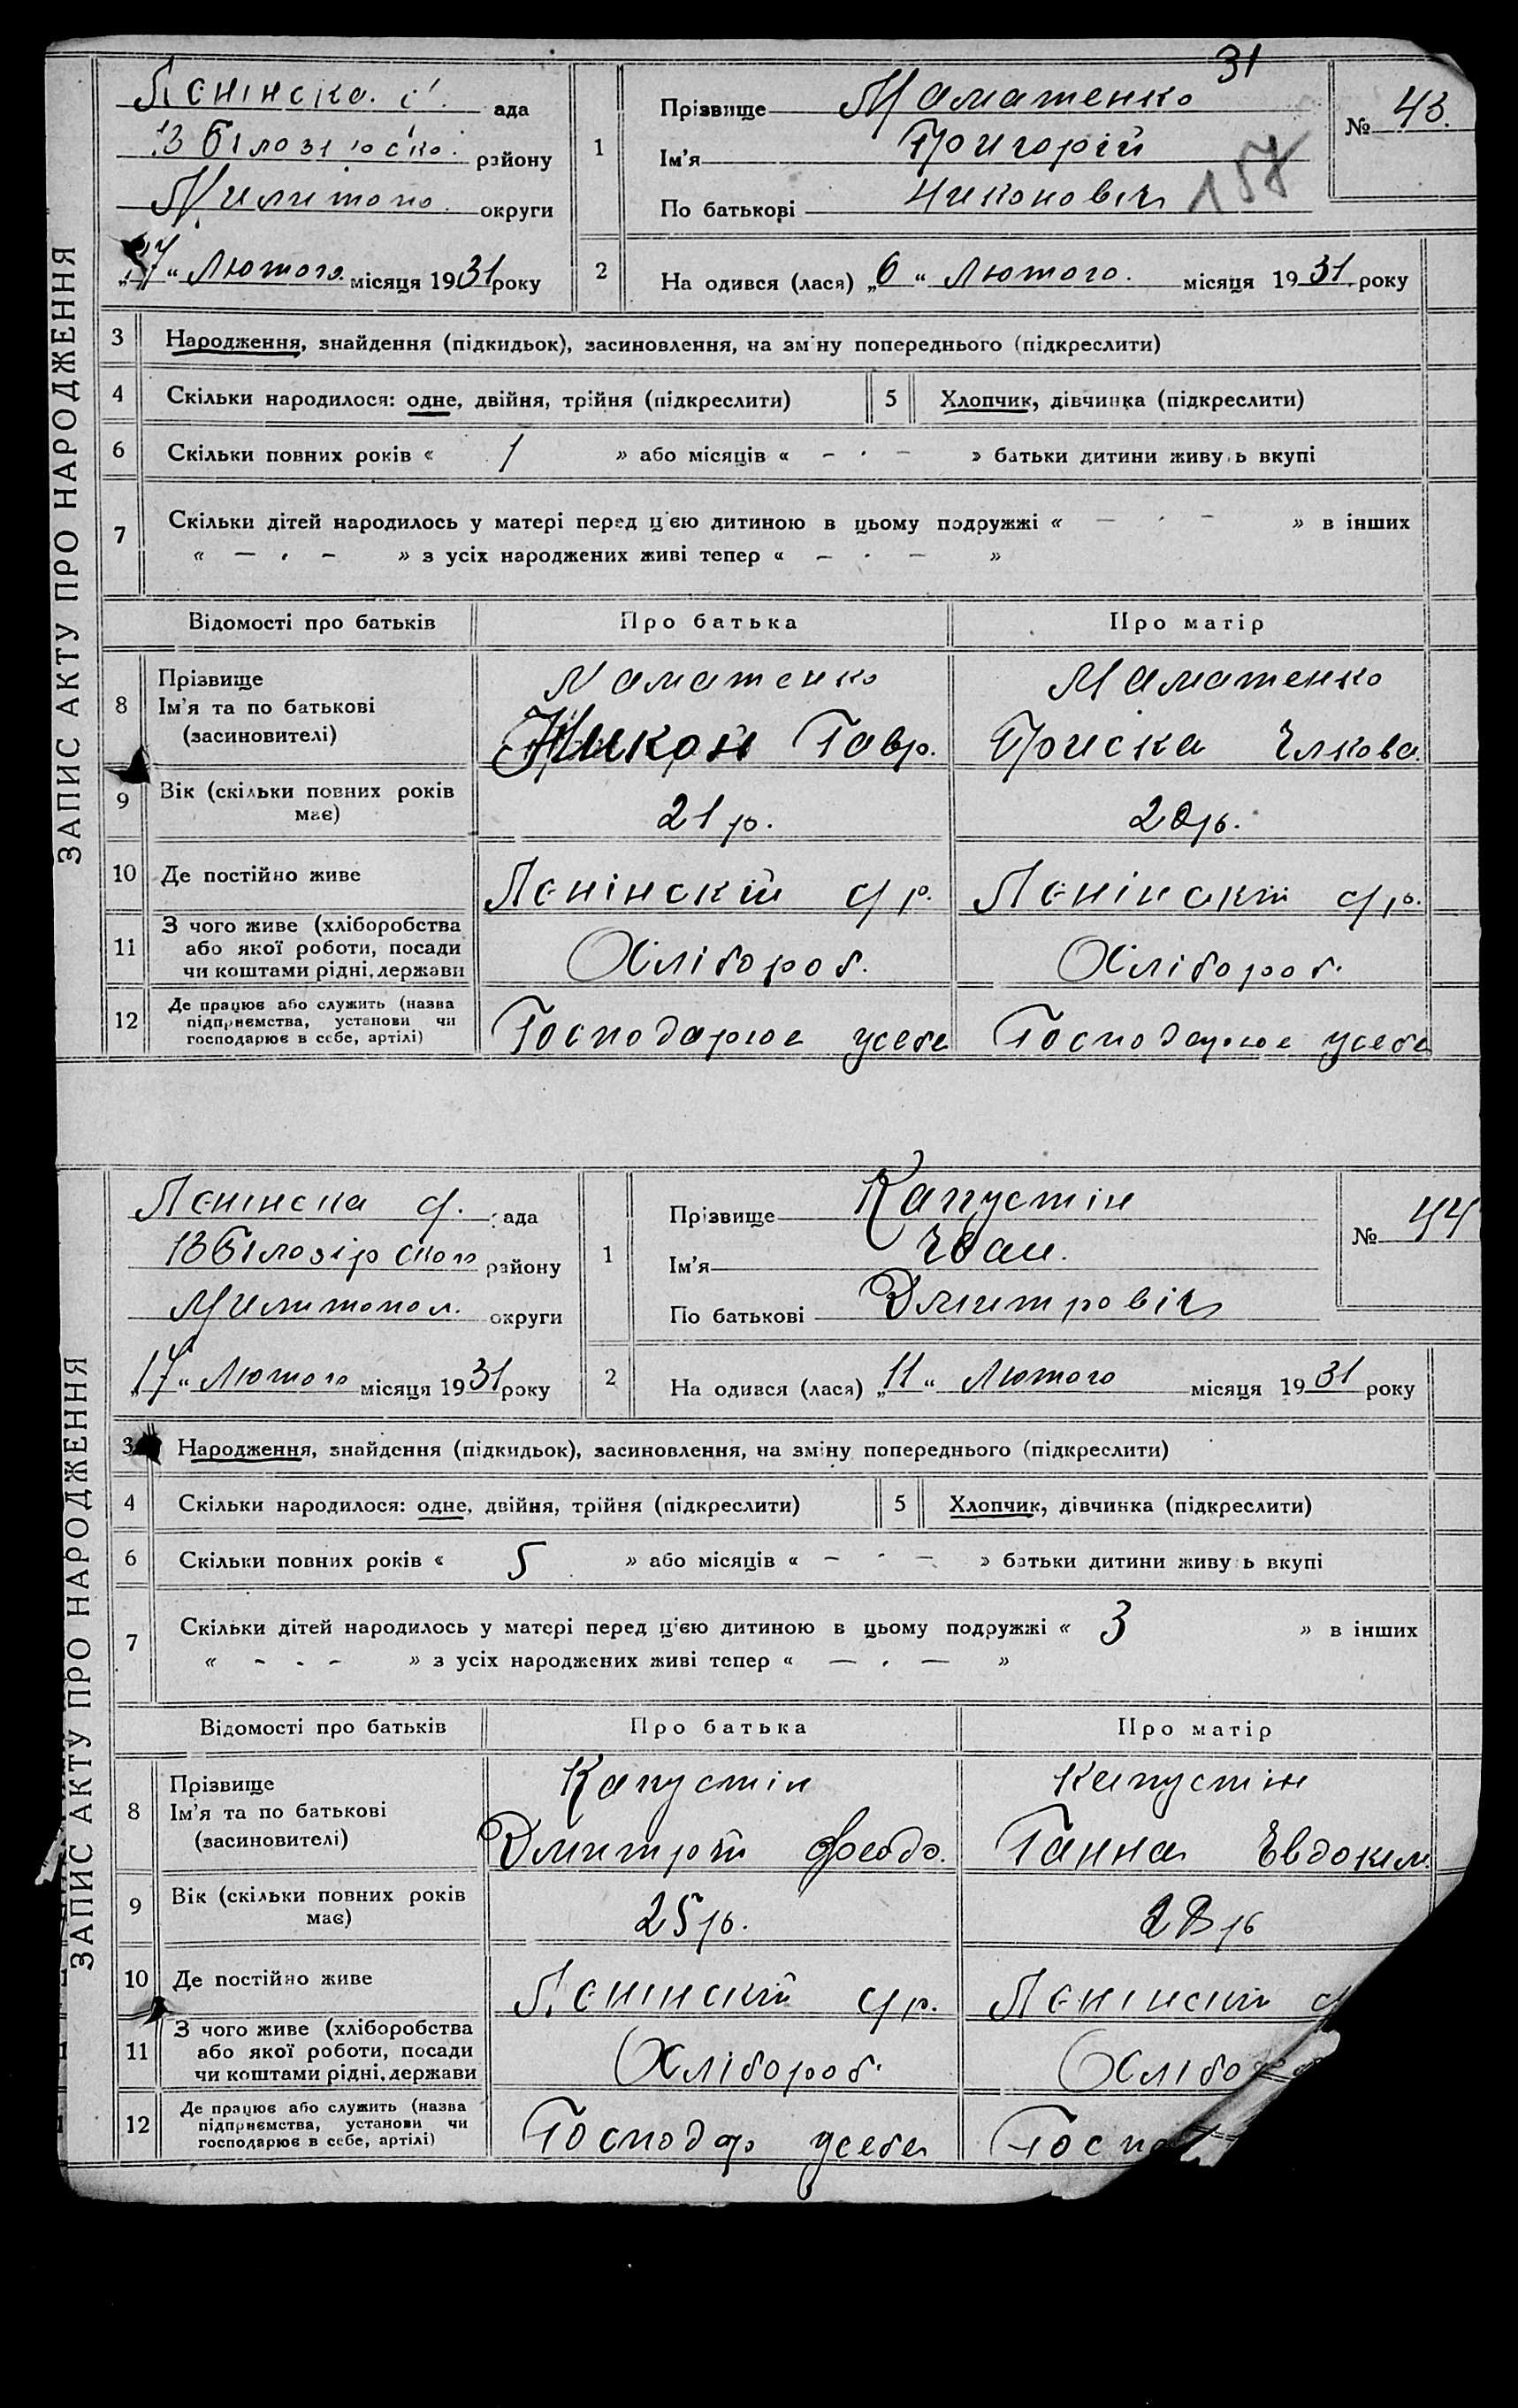 31
ЗАПИС АКТУ ПРО НАРОДЖЕННЯ
Ленінска с. ада
В Білозірско району
Милитопо. округи
„17“ Лютого місяця 1931 року
1
Прізвище Маматенко
Ім'я Григорій
По батькові Никоновіч
№ 43.
157
2
На одився (лася) „6“ Лютого. місяця 1931 року
3 Народження, знайдення (підкидьок), засиновлення, на зміну попереднього (підкреслити)
4 Скільки народилося: одне, двійня, трійня (підкреслити) 5 Хлопчик, дівчинка (підкреслити)
6 Скільки повних років « 1 » або місяців « – · – » батьки дитини живу ь вкупі
7 Скільки дітей народилось у матері перед цією дитиною в цьому подружжі « – · – » в інших
« – · – » з усіх народжених живі тепер « – · – »
Відомості про батьків Про батька Про матір
8 Прізвище Ім'я та по батькові (засиновителі)
Маматенко Маматенко
Никон Гавр. Приска Ілкова.
9 Вік (скільки повних років має) 21 р. 20 р.
10 Де постійно живе Ленінскій с/р. Ленінскій с/р.
11 З чого живе (хліборобства або якої роботи, посади чи коштами рідні, держави Хлібороб. Хлібороб.
12 Де працює або служить (назва підприємства, установи чи господарює в себе, артілі) Господарює усебе Господарює усебе
ЗАПИС АКТУ ПРО НАРОДЖЕННЯ
Ленінска с. ада
В Білозірского району
Милитопол. округи
„17“ Лютого місяця 1931 року
1
Прізвище Капустін
Ім'я Іван.
По батькові Дмитровіч
№ 44
2
На одився (лася) „11“ Лютого місяця 1931 року
3 Народження, знайдення (підкидьок), засиновлення, на зміну попереднього (підкреслити)
4 Скільки народилося: одне, двійня, трійня (підкреслити) 5 Хлопчик, дівчинка (підкреслити)
6 Скільки повних років « 5 » або місяців « – · – » батьки дитини живу ь вкупі
7 Скільки дітей народилось у матері перед цією дитиною в цьому подружжі « 3 » в інших
« – · – » з усіх народжених живі тепер « – · – »
Відомості про батьків Про батька Про матір
8 Прізвище Ім'я та по батькові (засиновителі)
Капустін Капустін
Дмитрій Феодо. Ганна Євдоким.
9 Вік (скільки повних років має) 25 р. 23 р
10 Де постійно живе Ленінскій с/р. Ленінскій с/
11 З чого живе (хліборобства або якої роботи, посади чи коштами рідні, держави Хлібороб. Хлібо
12 Де працює або служить (назва підприємства, установи чи господарює в себе, артілі) Господар усебе Госпо